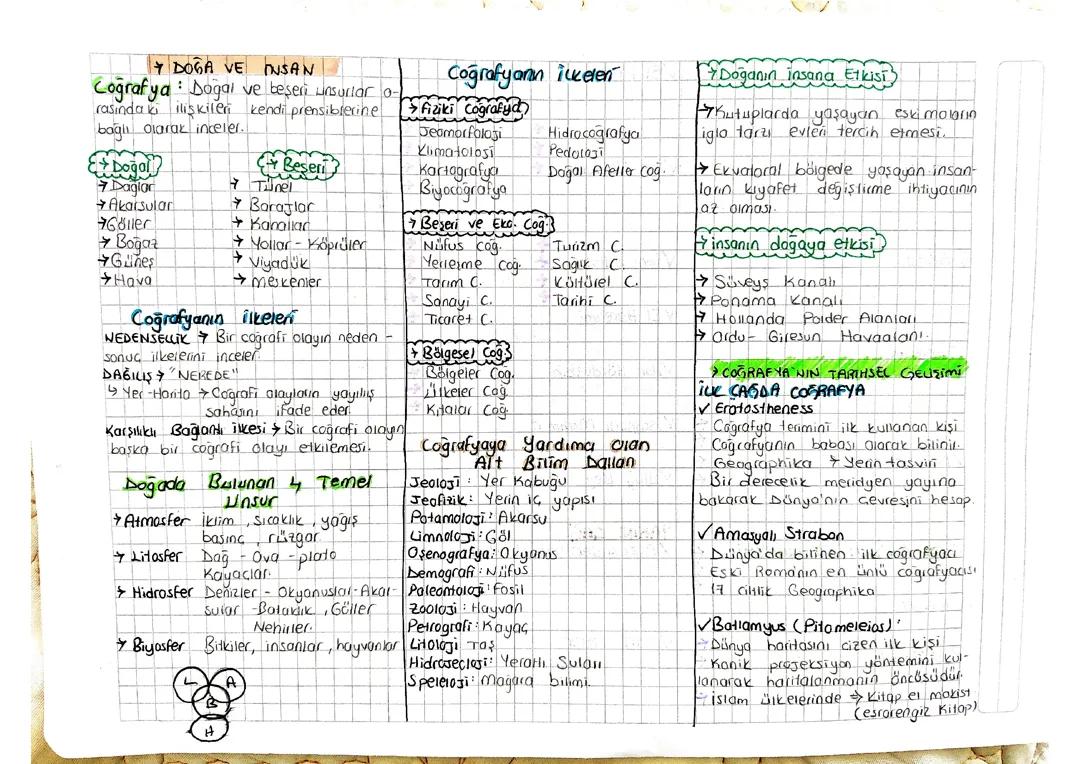 → DOĞA VE İNSAN
Coğrafya : Doğal ve beşeri unsurlar a-
rasındaki ilişkileri kendi prensiblerine
bağlı olarak inceler.
→ Doğal
→ Dağlar
→ Akarsular
→ Göller
→ Boğaz
→ Güneş
→ Hava
→ Beşeri
→ Tünel
→ Barajlar
→ Kanallar
→ Yollar - Köprüler
→ Viyadük
→ Meskenler
Coğrafyanın İlkeleri
NEDENSELLİK → Bir coğrafi olayın neden -
sonuç ilkelerini inceler.
DAĞILIŞ → "NEREDE"
↳ Yer-Harita → Coğrafi olayların yayılış
sahasını ifade eder.
Karşılıklı Bağlantı ilkesi → Bir coğrafi olayın
başka bir coğrafi olayı etkilemesi.
Doğada Bulunan 4 Temel
Unsur
→ Atmosfer İklim , sıcaklık , yağış
basınç , rüzgar
→ Litosfer Dağ - Ova - plato
Kayaçlar.
→ Hidrosfer Denizler - Okyanuslar-Akar-
sular -Bataklık , Göller
Nehirler.
→ Biyosfer Bitkiler, insanlar , hayvanlar
L A
B
H
Coğrafyanın İlkeleri
→ Fiziki Coğrafya
Jeomorfoloji Hidrocoğrafya
Klimatoloji Pedoloji
Kartografya Doğal Afetler Coğ.
Biyocoğrafya
→ Beşeri ve Eko. Coğ.
Nüfus coğ. Turizm C.
Yerleşme coğ. Sağlık C.
Tarım C. Kültürel C.
Sanayi C. Tarihi C.
Ticaret C.
→ Bölgesel Coğ.
Bölgeler Coğ.
Ülkeler Coğ.
Kıtalar Coğ.
Coğrafyaya Yardımcı Olan
Alt Bilim Dalları
Jeoloji : Yer Kabuğu
Jeofizik : Yerin iç yapısı
Potamoloji : Akarsu
Limnoloji : Göl
Oşenografya : Okyanus
Demografi : Nüfus
Paleontoloji : Fosil
Zooloji : Hayvan
Petrografi : Kayaç
Litoloji Taş
Hidroseoloji : Yeraltı Suları
Speleloji : Mağara bilimi.
→ Doğanın insana Etkisi
→ Kutuplarda yaşayan eskimoların
iglo tarzı evleri tercih etmesi.
→ Ekvatoral bölgede yaşayan insan-
ların kıyafet değiştirme ihtiyacının
az olması.
→ insanın doğaya etkisi
→ Süveyş Kanalı
→ Panama Kanalı
→ Hollanda Polder Alanları
→ Ordu- Giresun Havaalanı.
→ COĞRAFYA'NIN TARİHSEL GELİŞİMİ
İLK ÇAĞDA COĞRAFYA
✓ Eratostheness
Coğrafya terimini ilk kullanan kişi
Coğrafyanın babası olarak bilinir.
Geographika → Yerin tasviri
Bir derecelik meridyen yayına
bakarak Dünya'nın çevresini hesap.
✓ Amasyalı Strabon
Dünya'da bilinen ilk coğrafyacı
Eski Roma'nın en ünlü coğrafyacısı
17 ciltlik Geographika
✓ Batlamyus (Pitomeleias) :
→ Dünya haritasını çizen ilk kişi
Konik projeksiyon yöntemini kul-
lanarak haritalanmanın öncüsüdür.
İslam ülkelerinde → Kitap el makist
(esrarengiz Kitap)